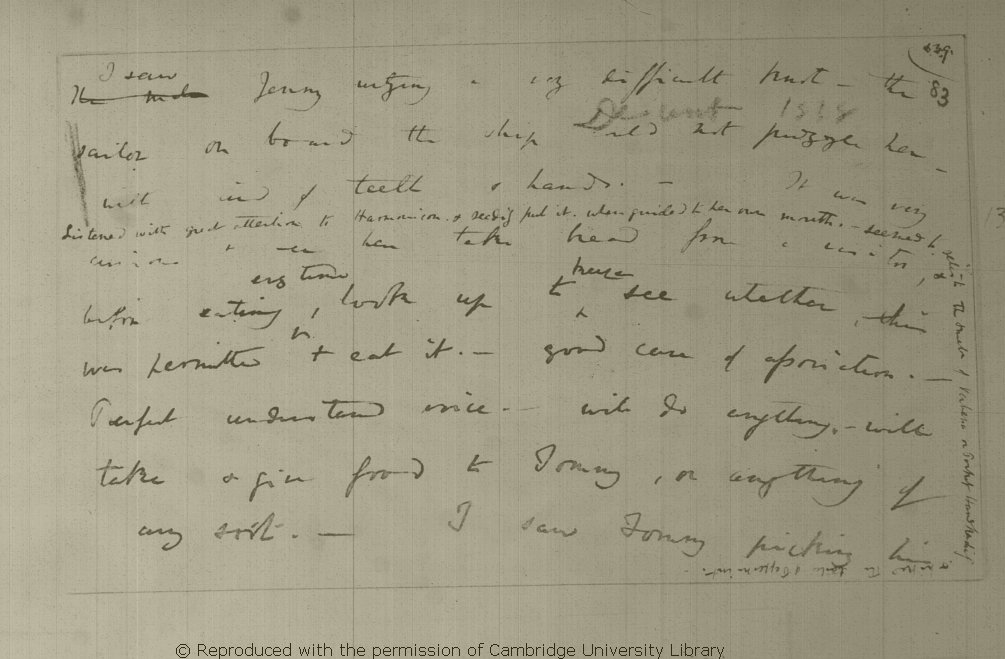 639.
83
I saw
The male Jenny untying a very difficult knot — the
Descent 1838
sailor on board the ship could not puzzle her —
with aid of teeth & hands. — It was very
Listened with great attention to Harmonicon. & readily put it. when guided to her own mouth. — seemed to relish the smell of Verbena or Pocket Handkerchief
curious to see her take bread from a visitor, &
before eating, every time, look up to keeper see whether this
was permitted & eat it. — good case of association. —
Perfect understand voice. — will do anything. — will
take & give food to Tommy, or anything of
any sort. — I saw Tommy picking his
& liked the taste of Peppermint. —
© Reproduced with the permission of Cambridge University Library